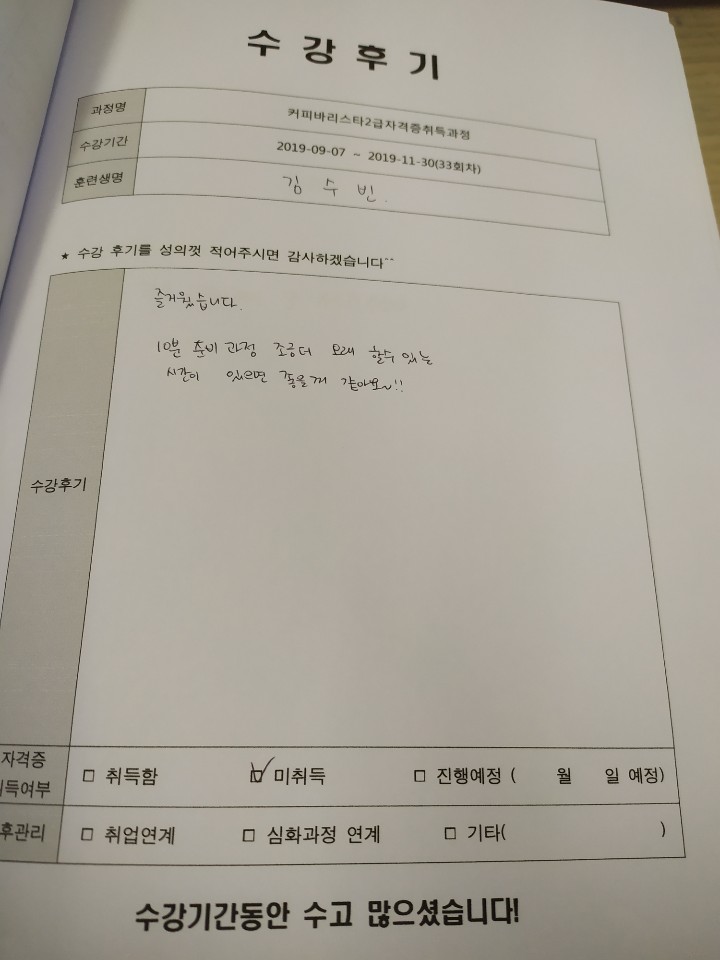 수강후기
과정명 커피바리스타2급자격증취득과정
수강기간 2019-09-07 ~ 2019-11-30(33회차)
훈련생명 김수빈.
★ 수강 후기를 성의껏 적어주시면 감사하겠습니다^^
수강후기
즐거웠습니다.
10분 준비 과정 조금더 오래 할수 있는
시간이 있으면 좋을거 같아요~!!
자격증
득여부
□ 취득함 ☑ 미취득 □ 진행예정 ( 월 일 예정)
후관리 □ 취업연계 □ 심화과정 연계 □ 기타( )
수강기간동안 수고 많으셨습니다!